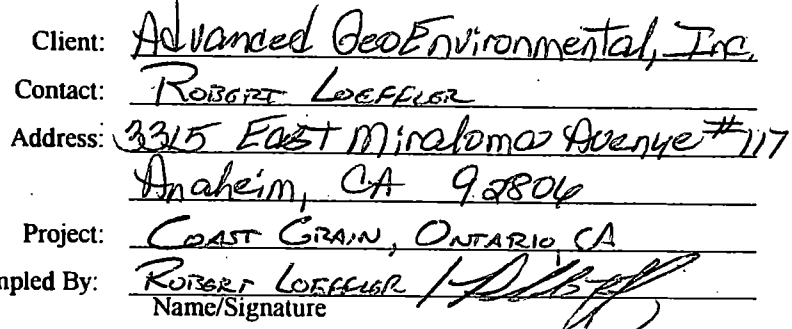 Client: Advanced GeoEnvironmental, Inc.
Contact: ROBERT LOEFFLER
Address: 3315 East Miraloma Avenue #117
Anaheim, CA 92806
Project: COAST GRAIN, ONTARIO, CA
mpled By: ROBERT LOEFFLER /
Name/Signature